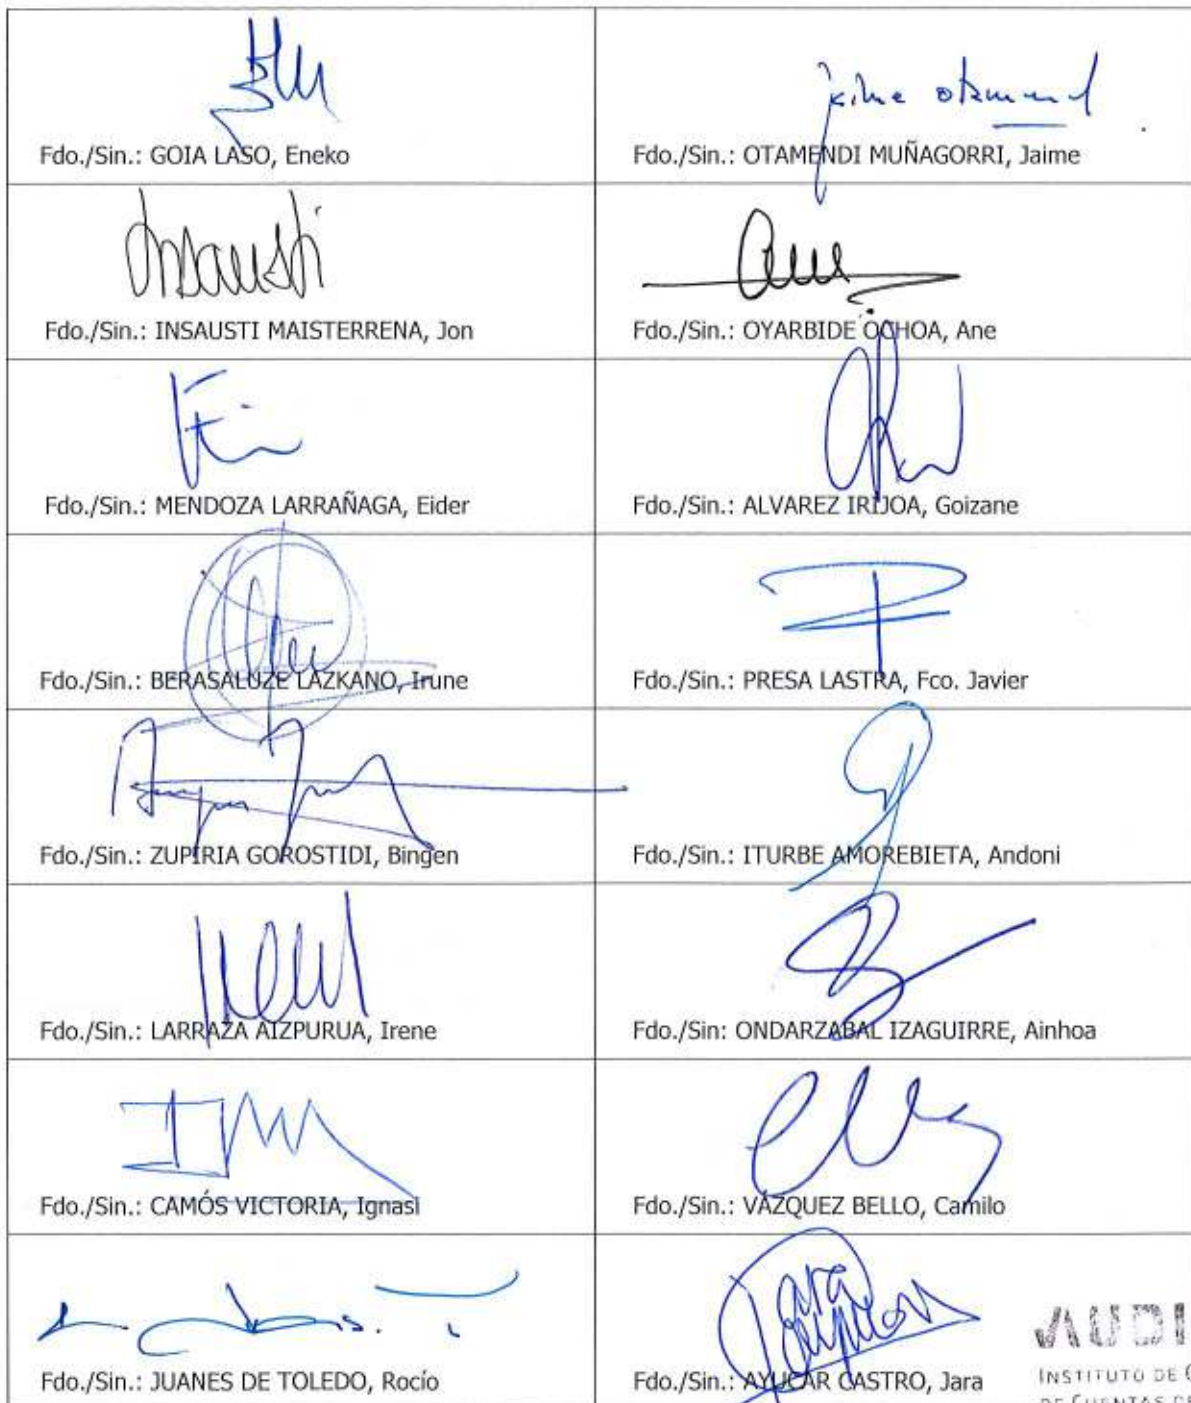 Fdo./Sin.: GOIA LASO, Eneko
jaime otamendi
Fdo./Sin.: OTAMENDI MUÑAGORRI, Jaime
Insausti
Fdo./Sin.: INSAUSTI MAISTERRENA, Jon
Fdo./Sin.: OYARBIDE OCHOA, Ane
Fdo./Sin.: MENDOZA LARRAÑAGA, Eider
Fdo./Sin.: ALVAREZ IRIJOA, Goizane
Fdo./Sin.: BERASALUZE LAZKANO, Irune
Fdo./Sin.: PRESA LASTRA, Fco. Javier
Fdo./Sin.: ZUPIRIA GOROSTIDI, Bingen
Fdo./Sin.: ITURBE AMOREBIETA, Andoni
Fdo./Sin.: LARRAZA AIZPURUA, Irene
Fdo./Sin: ONDARZABAL IZAGUIRRE, Ainhoa
Fdo./Sin.: CAMÓS VICTORIA, Ignasi
Fdo./Sin.: VÁZQUEZ BELLO, Camilo
Fdo./Sin.: JUANES DE TOLEDO, Rocío
Jara
Fdo./Sin.: AYUCAR CASTRO, Jara
AUDI
INSTITUTO DE
DE CUENTAS DE